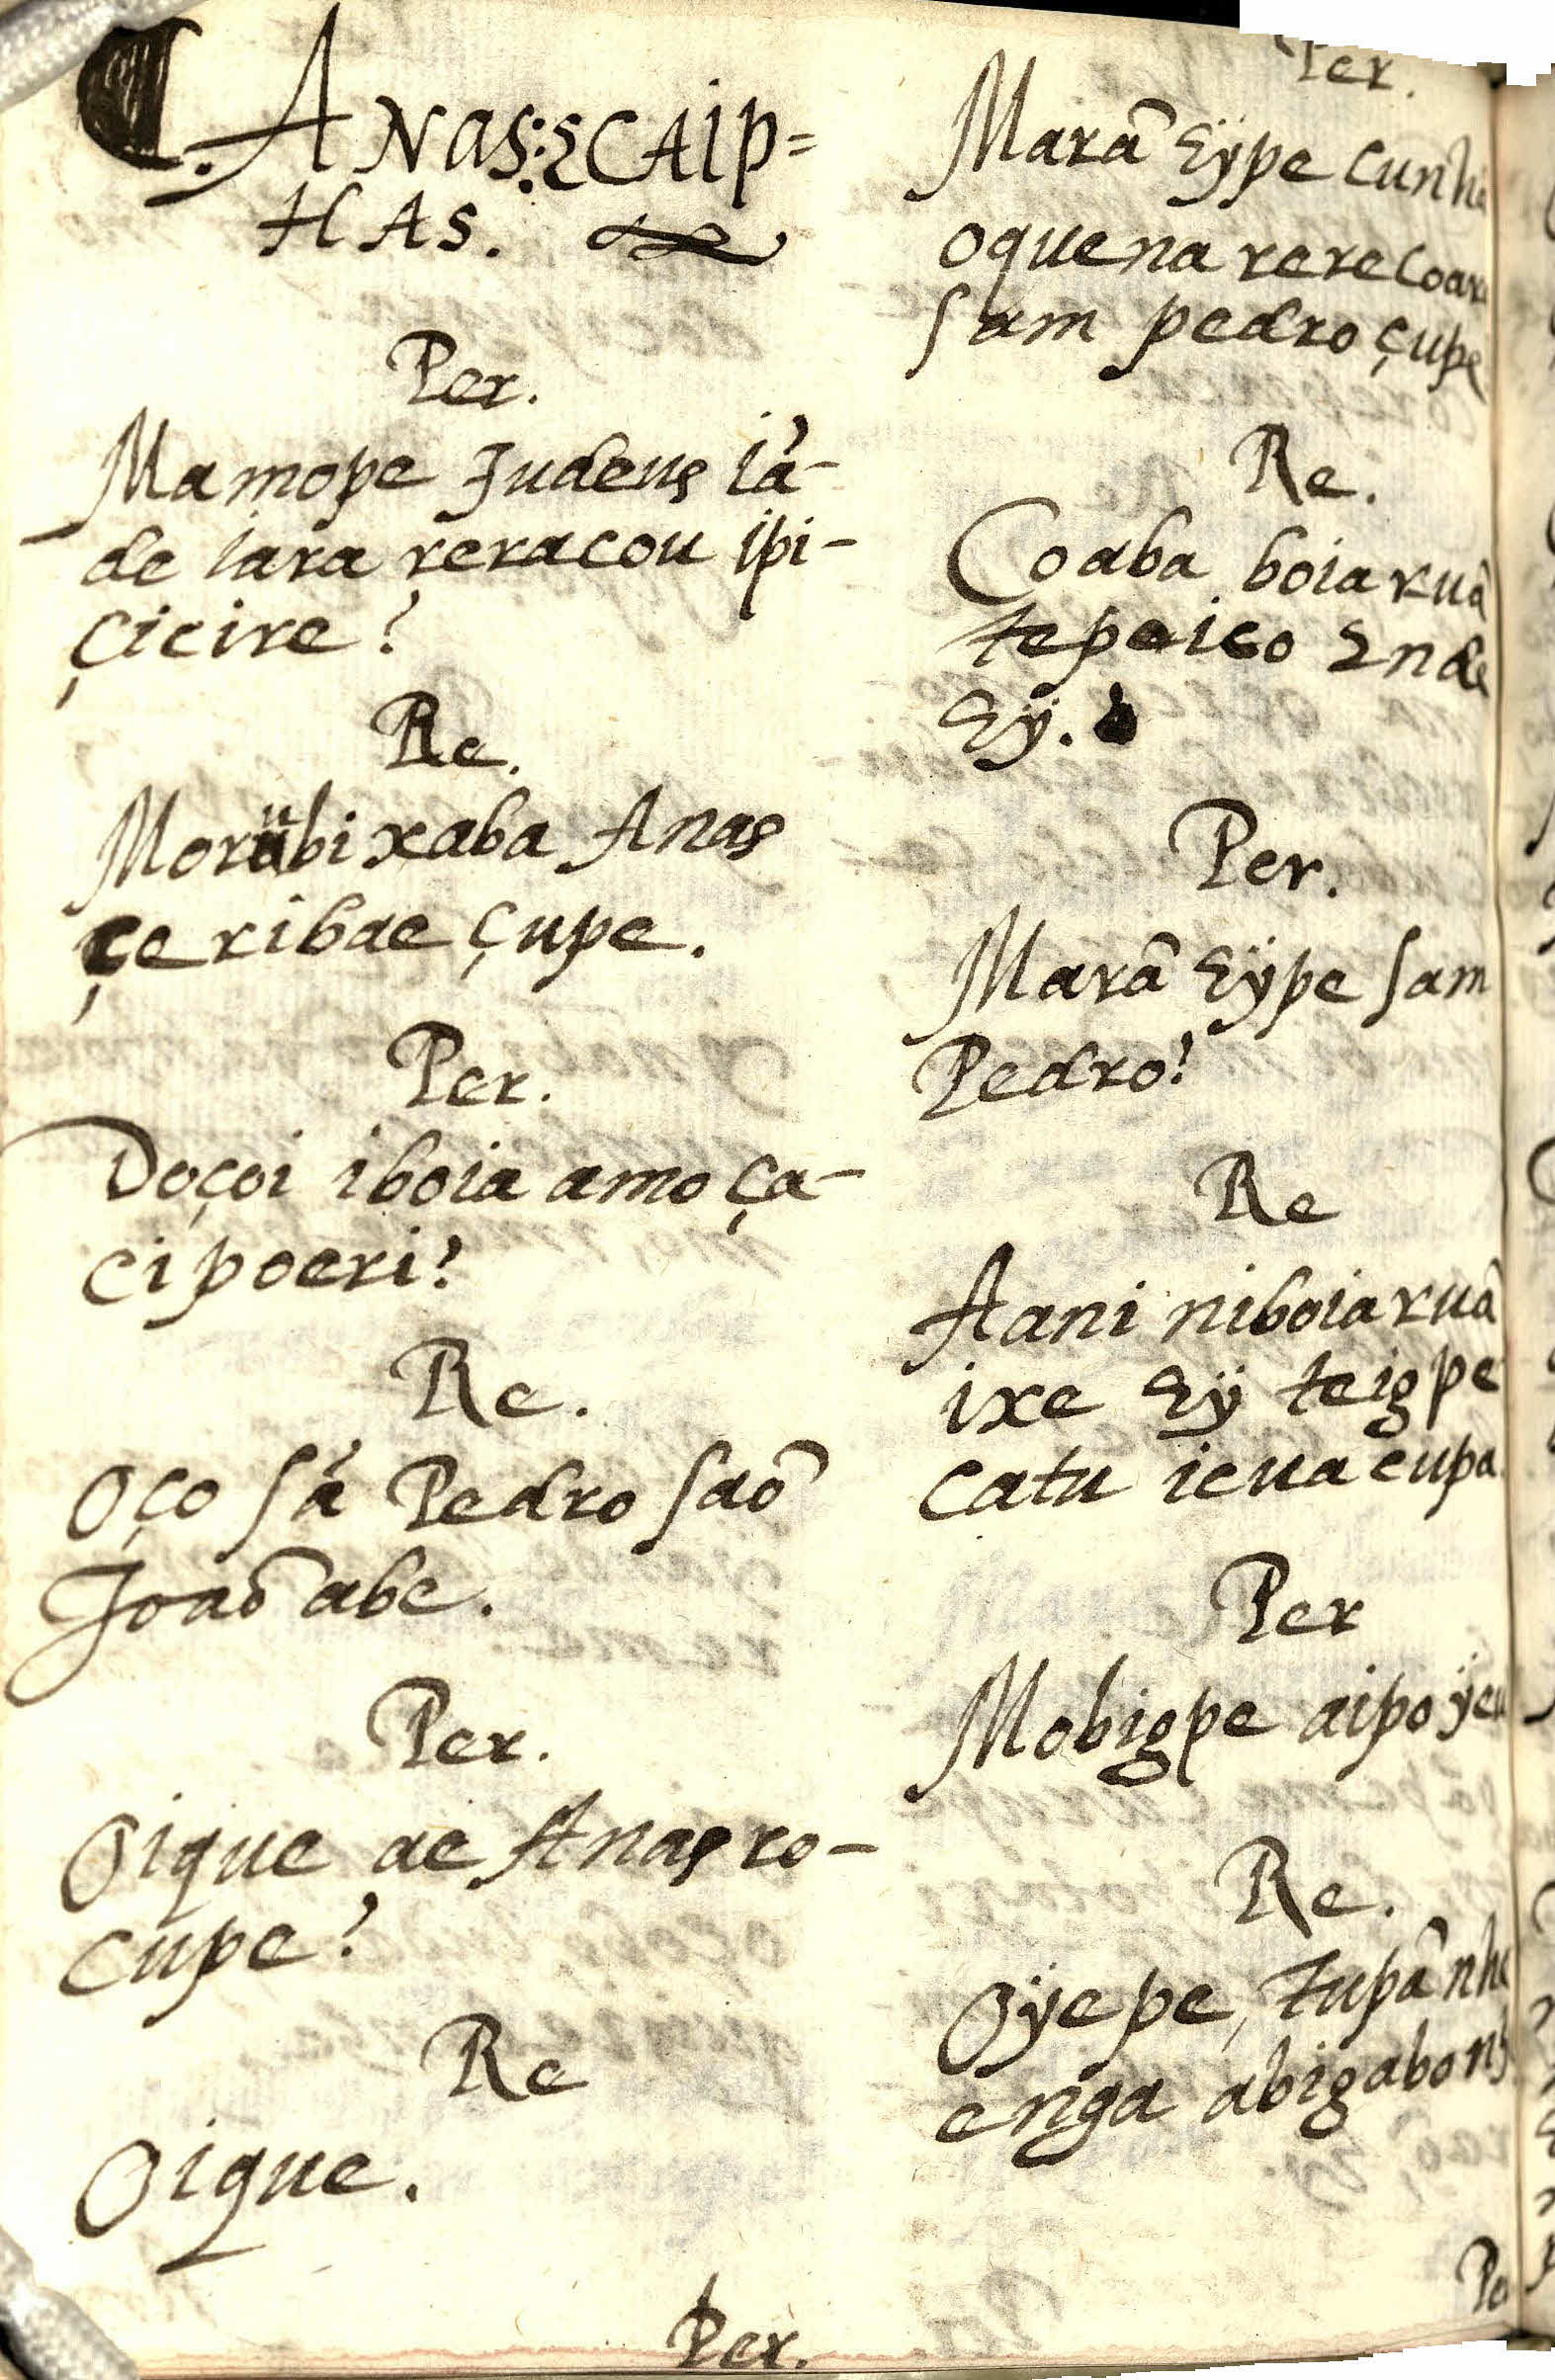 ANas: & CAip=
HAs.
Per.
Mamope Judeus iá-
de iara reracou ipi-
çicire?
Re.
Morubixaba Anas
çeribae çupe.
Per.
Doçoi iboia amo ça-
cipoeri?
Re.
Oço Sá Pedro Saõ
Joaõ abe.
Per.
Oique ae Anas ro-
cupe?
Re
Oique.
Per.
Per.
Marã Eÿpe cunha
oquena rerecoara
Sam pedro çupe
Re.
Coaba boia ruã
tepeico Ende
Eÿ.
Per.
Marã Eÿpe Sam
Pedro?
Re
Aani niboia ruã
ixe Eÿ teigpe
catu icuacupa
Per
Mobigpe aipo ÿeu
Re.
Oÿepe, tupã nhe
enga abigabo
Per